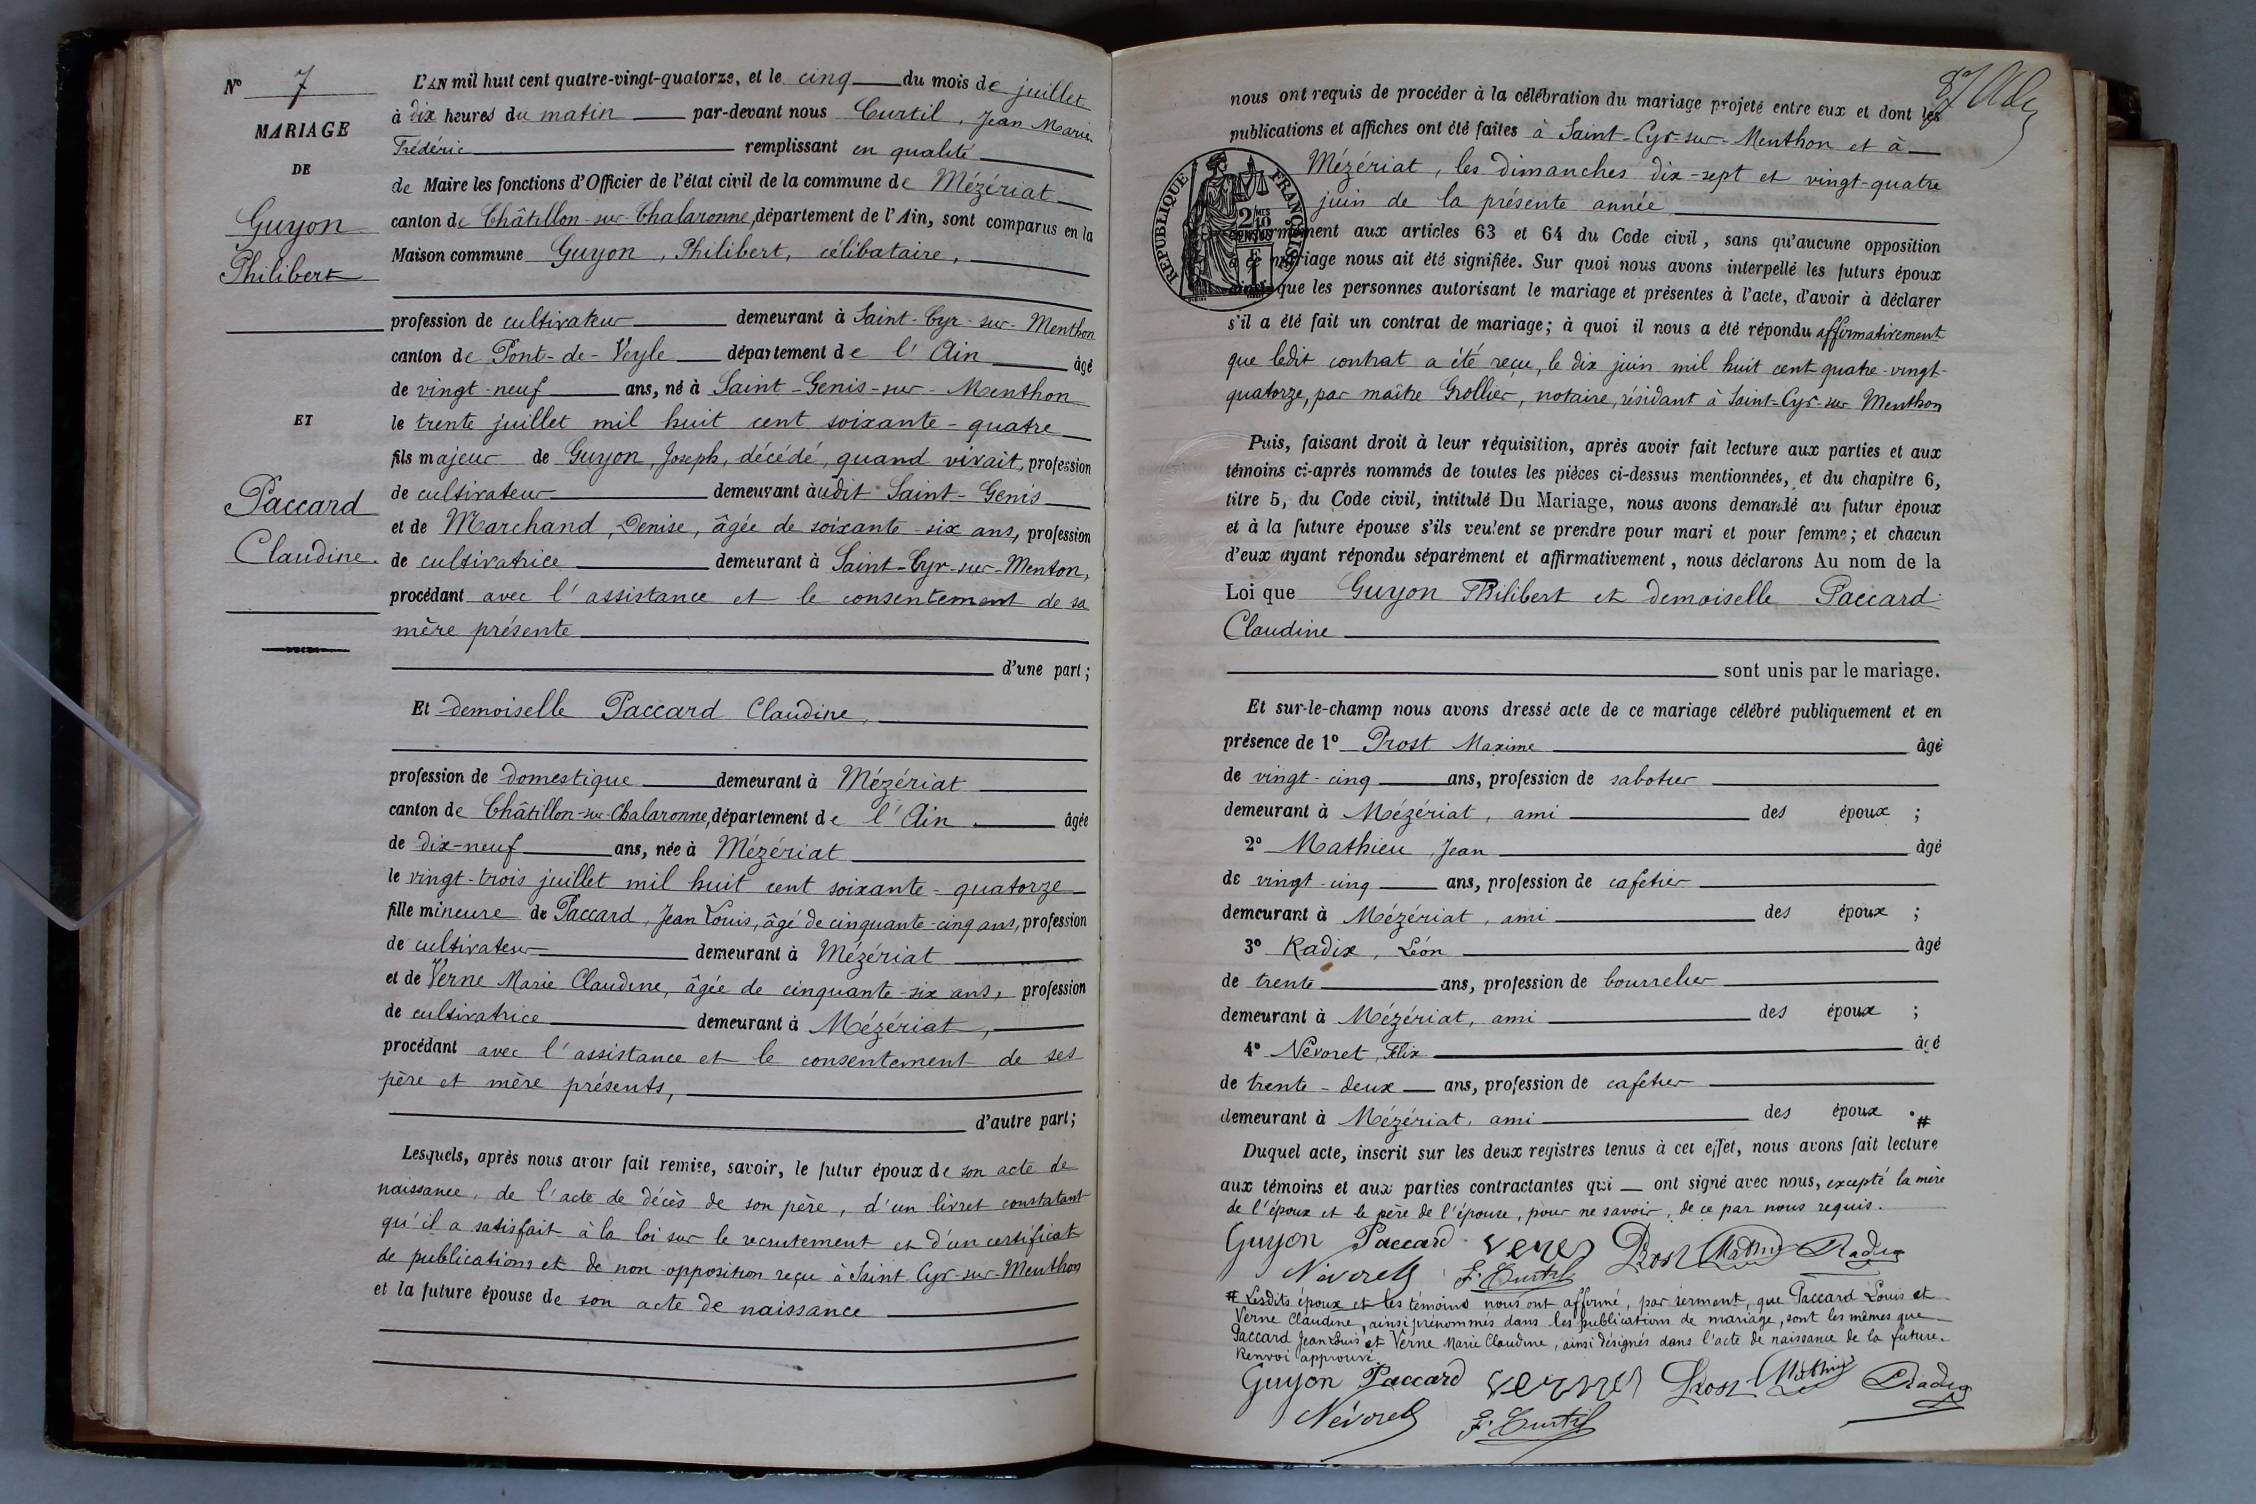 N° 7
MARIAGE
DE
Guyon
Philibert
ET
Paccard
Claudine.
L'AN mil huit cent quatre-vingt-quatorze, et le cinq du mois de juillet
à dix heures du matin par-devant nous Curtil, Jean Marie
Frédéric remplissant en qualité
de Maire les fonctions d'Officier de l'état civil de la commune de Mézériat
canton de Châtillon-sur-Chalaronne, département de l'Ain, sont comparus en la
Maison commune Guyon, Philibert, célibataire,
profession de cultivateur demeurant à Saint-Cyr-sur-Menthon
canton de Pont-de-Veyle département de l'Ain âgé
de vingt-neuf ans, né à Saint-Genis-sur-Menthon
le trente juillet mil huit cent soixante-quatre
fils majeur de Guyon, Joseph, décédé, quand vivait, profession
de cultivateur demeurant audit Saint-Genis
et de Marchand, Denise, âgée de soixante-six ans, profession
de cultivatrice demeurant à Saint-Cyr-sur-Menton,
procédant avec l'assistance et le consentement de sa
mère présente
d'une part;
Et demoiselle Paccard Claudine,
profession de domestique demeurant à Mézériat
canton de Châtillon-sur-Chalaronne, département de l'Ain âgée
de dix-neuf ans, née à Mézériat
le vingt-trois juillet mil huit cent soixante-quatorze
fille mineure de Paccard, Jean Louis, âgé de cinquante-cinq ans, profession
de cultivateur demeurant à Mézériat
et de Verne Marie Claudine, âgée de cinquante-six ans, profession
de cultivatrice demeurant à Mézériat,
procédant avec l'assistance et le consentement de ses
père et mère présents,
d'autre part;
Lesquels, après nous avoir fait remise, savoir, le futur époux de son acte de
naissance, de l'acte de décès de son père, d'un livret constatant
qu'il a satisfait à la loi sur le recrutement et d'un certificat
de publications et de non-opposition reçu à Saint-Cyr-sur-Menthon
et la future épouse de son acte de naissance
87
nous ont requis de procéder à la célébration du mariage projeté entre eux et dont les
publications et affiches ont été faites à Saint-Cyr-sur-Menthon et à
Mézériat, les dimanches dix-sept et vingt-quatre
juin de la présente année
RÉPUBLIQUE FRANÇAISE
2/10 MES
conformément aux articles 63 et 64 du Code civil, sans qu'aucune opposition
à ce mariage nous ait été signifiée. Sur quoi nous avons interpellé les futurs époux
ainsi que les personnes autorisant le mariage et présentes à l'acte, d'avoir à déclarer
s'il a été fait un contrat de mariage; à quoi il nous a été répondu affirmativement
que ledit contrat a été reçu, le dix juin mil huit cent quatre-vingt-
quatorze, par maître Grollier, notaire, résidant à Saint-Cyr-sur Menthon
Puis, faisant droit à leur réquisition, après avoir fait lecture aux parties et aux
témoins ci-après nommés de toutes les pièces ci-dessus mentionnées, et du chapitre 6,
titre 5, du Code civil, intitulé Du Mariage, nous avons demandé au futur époux
et à la future épouse s'ils veulent se prendre pour mari et pour femme; et chacun
d'eux ayant répondu séparément et affirmativement, nous déclarons Au nom de la
Loi que Guyon Philibert et demoiselle Paccard
Claudine
sont unis par le mariage.
Et sur-le-champ nous avons dressé acte de ce mariage célébré publiquement et en
présence de 1° Prost Maxime âgé
de vingt-cinq ans, profession de sabotier
demeurant à Mézériat, ami des époux ;
2° Mathieu, Jean âgé
de vingt-cinq ans, profession de cafetier
demeurant à Mézériat, ami des époux ;
3° Radix, Léon âgé
de trente ans, profession de bourrelier
demeurant à Mézériat, ami des époux ;
4° Névoret, Félix âgé
de trente-deux ans, profession de cafetier
demeurant à Mézériat, ami des époux . #
Duquel acte, inscrit sur les deux registres tenus à cet effet, nous avons fait lecture
aux témoins et aux parties contractantes qui ont signé avec nous, excepté la mère
de l'époux et le père de l'épouse, pour ne savoir, de ce par nous requis.
Guyon Paccard Prost Mathieu Radix
Névoret F. Curtil
# Lesdits époux et les témoins nous ont affirmé, par serment, que Paccard Louis et
Verne Claudine, ainsi prénommés dans les publications de mariage, sont les mêmes que
Paccard Jean Louis et Verne Marie Claudine, ainsi désignés dans l'acte de naissance de la future.
Renvoi approuvé.
Guyon Paccard Prost Mathieu Radix
Névoret F. Curtil